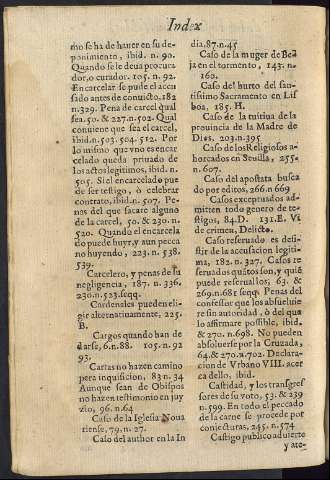 Index
mo se ha de hauer en su de-
ponimiento, ibid. n. 90.
Quando se le deua procura-
dor, o curador. 105. n. 92.
Encarcelar se pude el acu-
sado antes de conuicto. 182
n. 329. Pena de carcel qual
sea. 50. & 227. n. 502. Qual
conuiene que sea el carcel,
ibid. n. 503. 504. 512. Por
lo mismo que vno es encar
celado queda priuado de
los actos legitimos, ibid. n.
505. Si el encarcelado pue
de ser testigo, ò celebrar
contrato, ibid. n. 507. Pe-
nas del que sacare alguno
de la carcel, 50. & 230. n.
520. Quando el encarcela
do puede huyr, y aun pecca
no huyendo, 223. n. 538.
539.
Carcelero, y penas de su
negligencia, 187. n. 336.
230. n. 523. seqq.
Cardenales pueden eli-
gir alternatiuamente, 225.
B.
Cargos quando han de
darse, 6. n. 88. 105. n. 92
93.
Cartas no hazen camino
pera inquisicion, 83. n. 34
Aunque sean de Obispos
no hazen testimonio en juy
zio, 96. n. 64
Caso de la Iglesia Noua
riense, 79. n. 27.
Caso del author en la In
dia. 87. n. 45
Caso de la muger de Be-
ja en el tormento, 143. n.
160.
Caso del hurto del san-
tissimo Sacramento en Lis
boa, 185. H.
Caso de la tutiua de la
prouincia de la Madre de
Dios. 203. n. 395
Caso de los Religiosos a-
horcados en Seuilla, 255.
n. 607.
Caso del apostata busca
do por editos, 266. n. 669
Casos exceptuados ad-
mitten todo genero de tes-
tigos, 84. D. 131. E. Vi
de crimen, Delicto.
Caso reseruado es desi-
stir de la accusacion legiti-
ma, 182. n. 327. Casos re
seruados quātos son, y quiē
puede reseruallos, 63. &
269. n. 681 seqq. Penas del
confessor que los absuelue
sin autoridad, ò del que
lo affirmare possible, ibid.
& 270. n. 698. No pueden
absoluerse por la Cruzada,
64. & 270. n. 702. Declara-
cion de Vrbano VIII. acer
ca dello, ibid.
Castidad, y los transgres
sores de su voto, 53. & 239
n. 599. En todo el peccado
de la carne se procede por
conjecturas, 245. n. 574
Castigo publico aduierte
y ate-